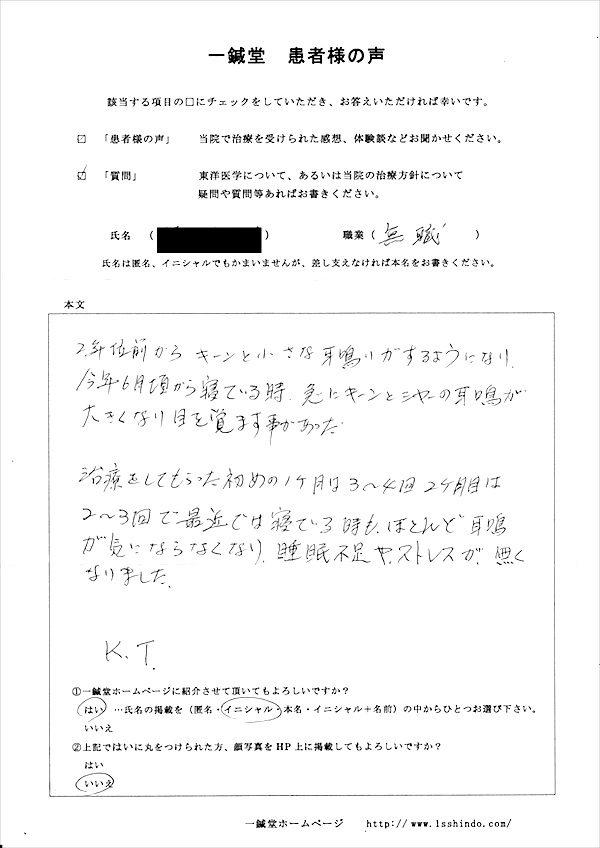 一鍼堂　患者様の声
該当する項目の□にチェックをしていただき、お答えいただければ幸いです。
☑ 「患者様の声」　当院で治療を受けられた感想、体験談などお聞かせください。
☑ 「質問」　東洋医学について、あるいは当院の治療方針について
疑問や質問等あればお書きください。
氏名　（　　）　職業（ 無職 ）
氏名は匿名、イニシャルでもかまいませんが、差し支えなければ本名をお書きください。
本文
2年位前から キーンと小さな耳鳴りがするようになり
今年6月頃から寝ている時、急にキーンとシャーの耳鳴が
大きくなり目を覚ます事があった
治療をしてもらった初めの1ヶ月は3〜4回 2ヶ月目は
2〜3回で最近では寝ている時も、ほとんど耳鳴
が気にならなくなり、睡眠不足や、ストレスが、無く
なりました。
K.T.
①一鍼堂ホームページに紹介させて頂いてもよろしいですか？
はい …氏名の掲載を（匿名・イニシャル・本名・イニシャル＋名前）の中からひとつお選び下さい。
いいえ
②上記ではいに丸をつけられた方、顔写真をHP上に掲載してもよろしいですか？
はい
いいえ
一鍼堂ホームページ　http://www.1sshindo.com/